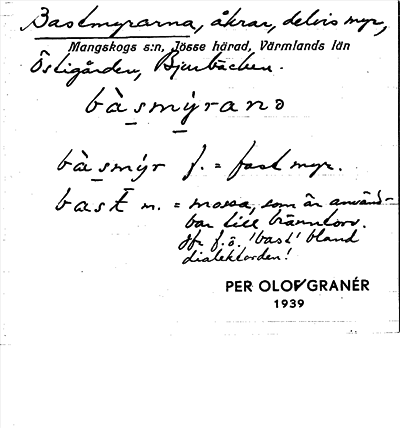 Bastmyrarna, åkrar, delvis myr,
Mangskogs s:n, Jösse härad, Värmlands län
Östigården, Bjurbäcken.
bàsmýranə
bàsmýr f. = fast myr.
bast m. = mossa, som är använd-
bar till bränntorv.
Jfr f.ö. 'bast' bland
dialektorden!
PER OLOF GRANÉR
1939